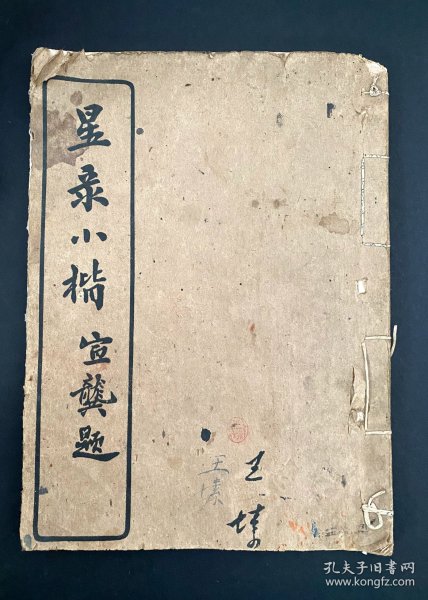 星录小楷 宣龚题
王
王
孔夫子旧书网
www.kongfz.com